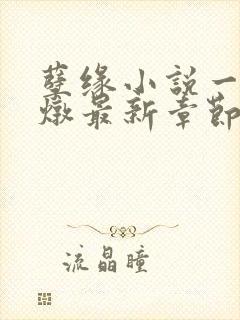 孽缘小説一
燉最新章節
流晶瞳